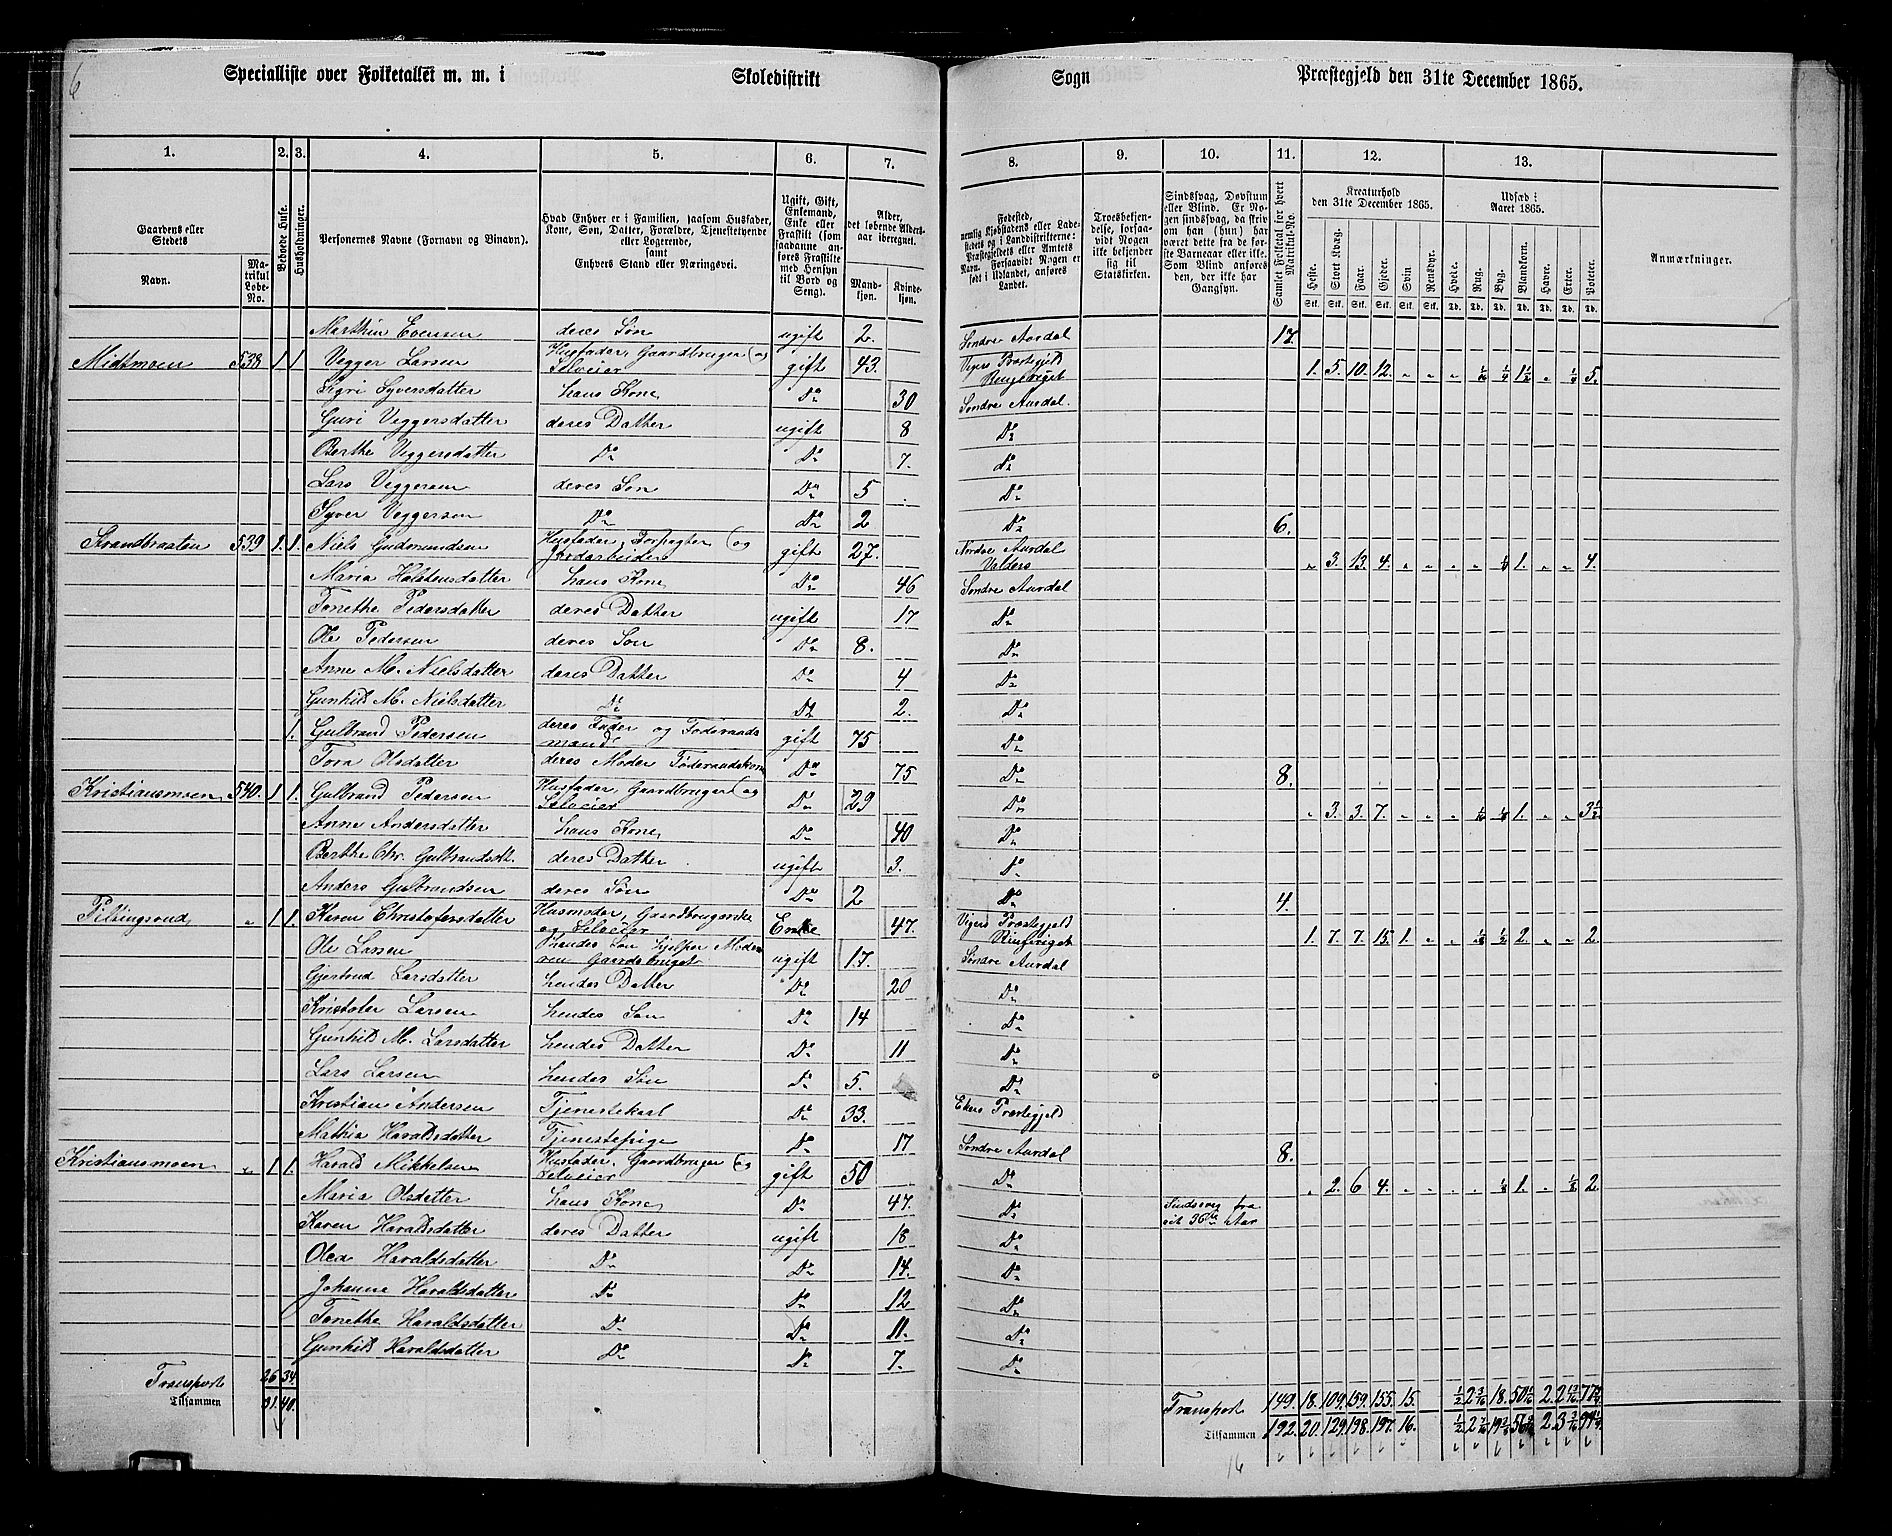 6
Specialliste over Folketallet m. m. i Skoledistrikt Sogn Præstegjeld den 31te December 1865.
1. 2. 3. 4. 5. 6. 7. 8. 9. 10. 11. 12. 13.
Gaardens eller Stedets
Navn.
Matrikul Lobe-No.
Beboede Huse.
Husholdninger.
Personernes Navne (Fornavn og Binavn).
Hvad Enhver er i Familien, saasom Husfader, Kone, Søn, Datter, Forældre, Tjenestetyende eller Logerende, samt Enhvers Stand eller Næringsvei.
Ugift, Gift, Enkemand, Enke eller Fraskilt (som saadanne anføres Fraskilte med Hensyn til Bord og Seng).
Alder, det løbende Aldersaar iberegnet.
Mandkjøn. Kvindekjøn.
Fødested, nemlig Kjøbstadens eller Ladestedets og i Landdistrikterne: Præstegjeldets eller Amtets Navn. Forsaavidt Nogen er født i Udlandet, anføres Landet.
Troesbekjendelse, forsaavidt Nogen ikke bekjender sig til Statskirken.
Sindssvag, Døvstum eller Blind. Er Nogen sindssvag, da skrives om han (hun) har været dette fra de første Barneaar eller ikke. Som Blind anføres den, der ikke har Gangsyn.
Samlet Folketal for hvert Matrikul-No.
Kreaturhold den 31te December 1865.
Heste. Stort Kvæg. Faar. Gjeder. Svin. Rensdyr.
Udsæd i Aaret 1865.
Hvede. Rug. Byg. Blandkorn. Havre. Erter. Poteter.
Anmærkninger.
Marthin Evensen deres Søn ugift 2. Søndre Aurdal 17.
Midtmoen 538 1 1 Vegger Larsen Husfader, Gaardbruger og Selveier gift 43. Vigers Præstegjeld Ringeriget 1. 5. 10. 12. 1/16 1/4 1 1/2 1/4 5.
Kyri Syversdatter hans Kone Do 30 Søndre Aurdal.
Guri Veggersdatter deres Datter ugift 8 Do
Berthe Veggersdatter Do Do 7. do
Lars Veggersen deres Søn Do 5 Do
Syver Veggersen Do Do 2 Do 6.
Strandbraaten 539 1. 1. Niels Gudmundsen Husfader, Forpagter og Jordarbeider gift 27. Nordre Aurdal Valders 3. 13. 4. 1/8 1. 4.
Maria Halstensdatter hans Kone Do 46 Søndre Aurdal
Tonethe Pedersdatter deres Datter ugift 17 Do
Ole Pedersen deres Søn Do 8. Do
Anne M. Nielsdatter deres Datter Do 4 Do
Gunhild M. Nielsdatter Do Do 2. Do
1. Gulbrand Pedersen deres Fader og Føderaadsmand gift 75 Do
Tora Olsdatter deres Moder Føderaadskone Do 75 Do 8.
Kristiansmoen 540. 1 1. Gulbrand Pedersen Husfader, Gaardbruger og Selveier Do 29 Do 3. 3. 7. 1/16 1/8 1. 3 1/2
Anne Andersdatter hans Kone Do 40 Do
Berthe Chr. Gulbrandsdt. deres Datter ugift 3. Do
Anders Gulbrandsen deres Søn Do 2 Do 4.
Piltingsrud 1 1. Karen Christofersdatter Husmoder, Gaardbrugerske og Selveier Enke 47. Vigers Præstegjeld Ringeriget 1. 7. 7. 15. 1. 1/2 2. 2.
Ole Larsen Hendes Søn hjelper Moderen Gaardsbruget ugift 17. Søndre Aurdal
Gjertrud Larsdatter hendes Datter Do 20 Do
Kristofer Larsen hendes Søn Do 14 Do
Gunhild M. Larsdatter hendes Datter Do 11 Do
Lars Larsen hendes Søn Do 5. Do
Kristian Andersen Tjenestekarl Do 33. Ekers Præstegjeld
Mathia Haraldsdatter Tjenestepige Do 17 Søndre Aurdal 8.
Kristiansmoen 1 1. Harald Mikkelsen Husfader, Gaardbruger og Selveier gift 50 Do 2. 6 4. 1/8 1. 1/8 2.
Maria Olsdatter hans Kone Do 47. Do Sindssvag fra sit 36te Aar
Karen Haraldsdatter deres Datter ugift 18 Do
Olea Haraldsdatter Do Do 14. Do
Johanna Haraldsdatter Do Do 12 Do
Tonethe Haraldsdatter Do Do 11. Do
Gunhild Haraldsdatter Do Do 7. Do
Transport 26 34. Transport 149. 18. 109. 159. 155. 15. 1/2 2 3/16 18.
Tilsammen 31. 40. Tilsammen 192. 20. 129. 198. 197. 16. 1/2
16